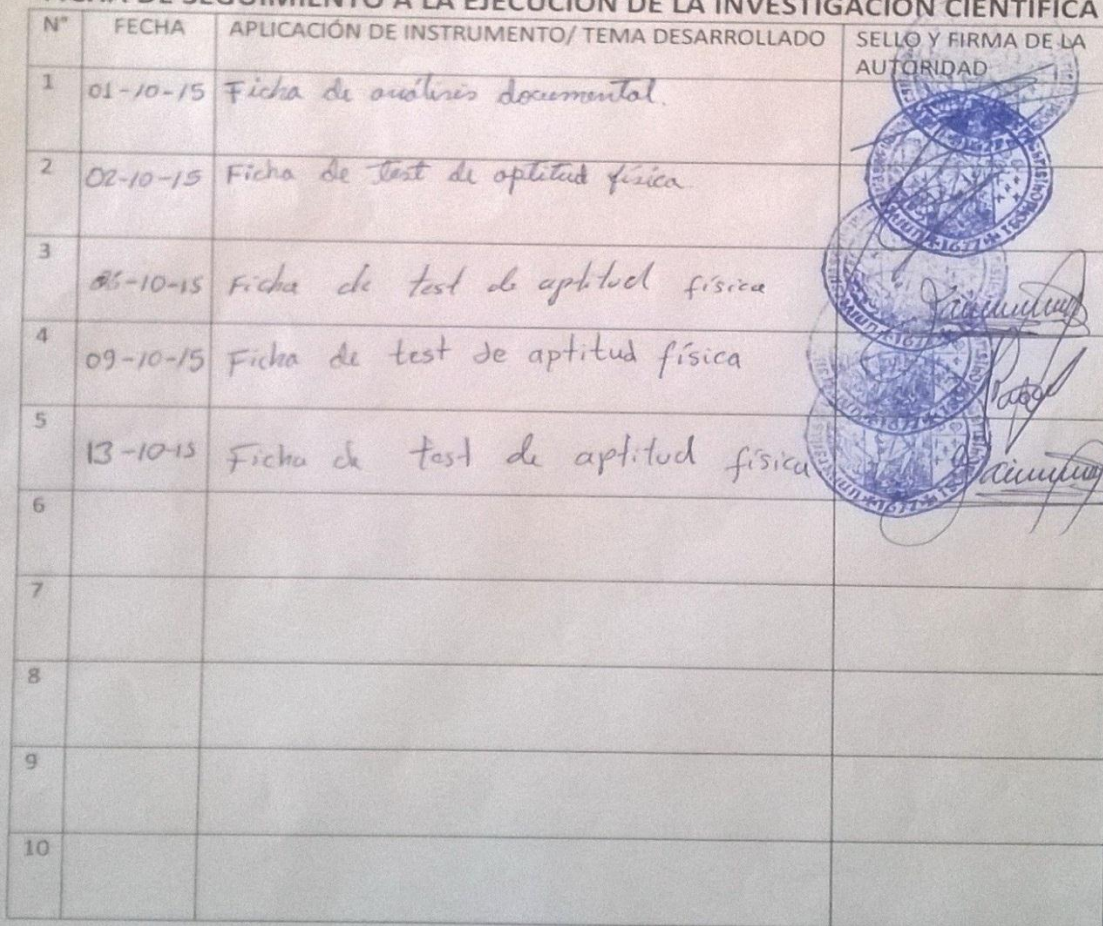 DE SEGUIMIENTO A LA EJECUCIÓN DE LA INVESTIGACIÓN CIENTÍFICA
N° FECHA APLICACIÓN DE INSTRUMENTO/ TEMA DESARROLLADO SELLO Y FIRMA DE LA AUTORIDAD
1 01-10-15 Ficha de análisis documental.
2 02-10-15 Ficha de test de aptitud física
3 06-10-15 Ficha de test de aptitud física
4 09-10-15 Ficha de test de aptitud física
5 13-10-15 Ficha de test de aptitud física
6
7
8
9
10